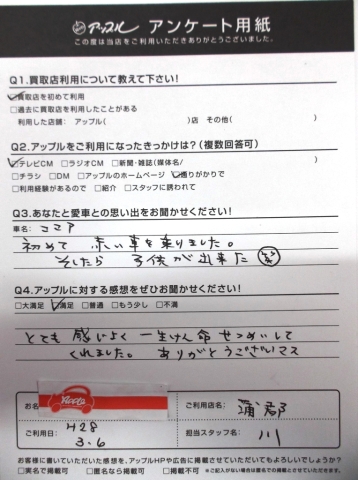 アップル アンケート用紙
この度は当店をご利用いただきありがとうございました。
Q1.買取店利用について教えて下さい!
☑買取店を初めて利用
□過去に買取店を利用したことがある
利用した店舗: アップル( )店 その他( )
Q2.アップルをご利用になったきっかけは?(複数回答可)
☑テレビCM □ラジオCM □新聞・雑誌(媒体名/ )
□チラシ □DM □アップルのホームページ ☑通りがかりで
□利用経験があるので □紹介 □スタッフに誘われて
Q3.あなたと愛車との思い出をお聞かせください!
車名: ココア
初めて 赤い車を乗りました。
そしたら 子供が出来た 笑
Q4.アップルに対する感想をぜひお聞かせください!
□大満足 ☑満足 □普通 □もう少し □不満
とても 感じよく 一生けん命 せつめいして
くれました。 ありがとうございマス
お名 Apple
ご利用店名: 蒲郡
ご利用日: H28
3.6
担当スタッフ名: 川
お客様に書いていただいた感想を、アップルHPや広告に掲載させていただいてもよろしいでしょうか?
□実名で掲載可 □匿名なら掲載可 □掲載不可 ※ご記入がない場合は匿名での掲載とさせていただきます。